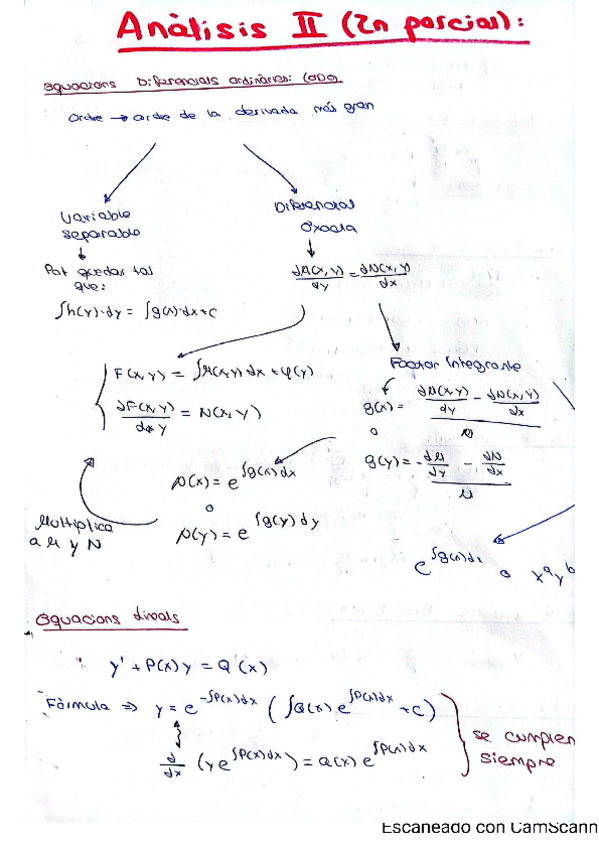 Anàlisis II (2n parcial):
equacions Diferencials ordinàries: (EDO).
Ordre → ordre de la derivada més gran
Variable
separable
Pot quedar tal
que:
∫h(y)·dy = ∫g(x)·dx+C
Diferencial
Exacta
dM(x,y)/dy = dN(x,y)/dx
F(x,y) = ∫M(x,y)dx + φ(y)
dF(x,y)/dy = N(x,y)
Factor integrante
g(x) =
o
g(y) =
μ(x) = e^∫g(x)dx
o
μ(y) = e^∫g(y)dy
Multiplica
a M y N
e^∫g(x)dx o x^a y^b
Equacions lineals
y' + P(x)y = Q(x)
Fórmula ⇒ y = e^-∫P(x)dx (∫Q(x)e^∫P(x)dx + C)
d/dx (ye^∫P(x)dx) = Q(x)e^∫P(x)dx
se cumplen
siempre
Escaneado con CamScann